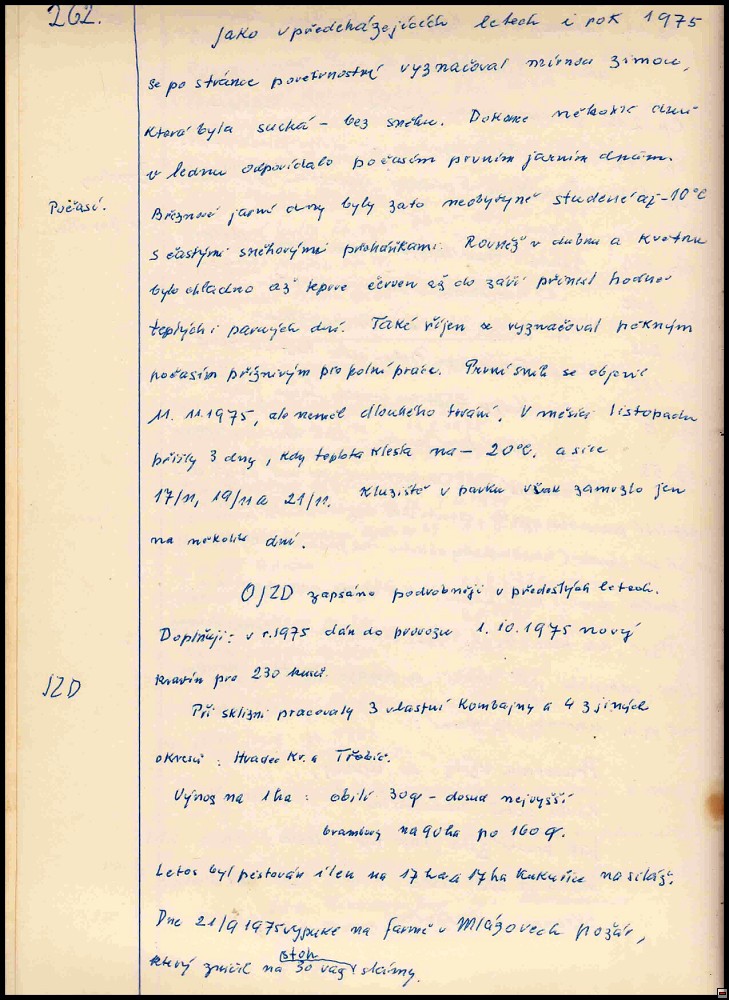 262.
Jako v předcházejících letech i rok 1975
se po stránce povětrnostní vyznačoval mírnou zimou,
která byla suchá - bez sněhu. Dokonce několik dnů
v lednu odpovídalo počasím prvním jarním dnům.
Počasí.
Březnové jarní dny byly zato neobyčejně studené až -10°C
s častými sněhovými přeháňkami. Rovněž v dubnu a květnu
bylo chladno až teprve červen až do září přinesl hodně
teplých i parných dní. Také říjen se vyznačoval pěkným
počasím příznivým pro polní práce. První sníh se objevil
11. 11.1975, ale neměl dlouhého trvání. V měsíci listopadu
přišly 3 dny, kdy teplota klesla na - 20°C. a sice
17/11, 19/11 a 21/11. Kluziště v parku však zamrzlo jen
na několik dní.
O JZD zapsáno podrobněji v předešlých letech.
Doplňuji: v r.1975 dán do provozu 1. 10. 1975 nový
JZD
kravín pro 230 kusů.
Při sklizni pracovaly 3 vlastní kombajny a 4 z jiných
okresů: Hradec Kr. a Třebíč.
Výnos na 1ha: obilí 30q - dosud nejvyšší
brambory na 90ha po 160 q.
Letos byl pěstován i len na 17 ha a 17ha kukuřice na siláž.
Dne 21/9 1975 vypukl na farmě v Mlázovech požár,
stoh
který zničil na 30 vag. slámy.